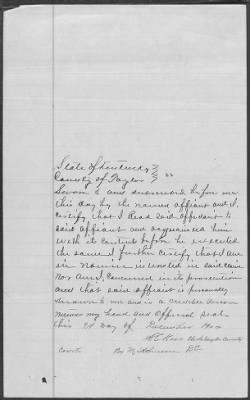 State of Kentucky
County of Taylor ss
Sworn to and subscribed before me
this day by the named affiant and I
certify that I Read said affidavit to
said affiant and acquainted him
with its contents before he executed
the same I further certify that I am
in nowise interested in said claim
Nor am I concerned in its prosecution
and that said affiant is personally
known to me and is a credible
my hand and official seal
this day of December
Clerk Taylor County
Court By DC